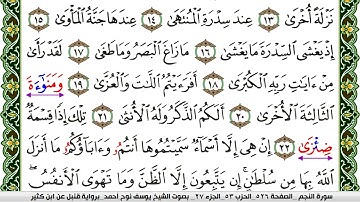 نَزْلَةً أُخْرَىٰ ١٣ عِندَ سِدْرَةِ الْمُنتَهَىٰ ١٤ عِندَهَا جَنَّةُ الْمَأْوَىٰ ١٥
إِذْ يَغْشَى السِّدْرَةَ مَا يَغْشَىٰ ١٦ مَا زَاغَ الْبَصَرُ وَمَا طَغَىٰ ١٧ لَقَدْ رَأَىٰ
مِنْ ءَايَٰتِ رَبِّهِ الْكُبْرَىٰ ١٨ أَفَرَءَيْتُمُ اللَّٰتَ وَالْعُزَّىٰ ١٩ وَمَنَوٰٓءَةَ
الثَّالِثَةَ الْأُخْرَىٰ ٢٠ أَلَكُمُ الذَّكَرُ وَلَهُ الْأُنثَىٰ ٢١ تِلْكَ إِذًا قِسْمَةٌ
ضِئْزَىٰ ٢٢ إِنْ هِيَ إِلَّا أَسْمَاءٌ سَمَّيْتُمُوهَا أَنتُمُۥ وَءَابَاؤُكُمُۥ مَا أَنزَلَ
اللَّهُ بِهَا مِن سُلْطَٰنٍ إِن يَتَّبِعُونَ إِلَّا الظَّنَّ وَمَا تَهْوَى الْأَنفُسُ
سورة النجم . الصفحة ٥٢٦ الحزب ٥٣ . الجزء ٢٧ . بصوت الشيخ يوسف نوح احمد برواية قنبل عن ابن كثير